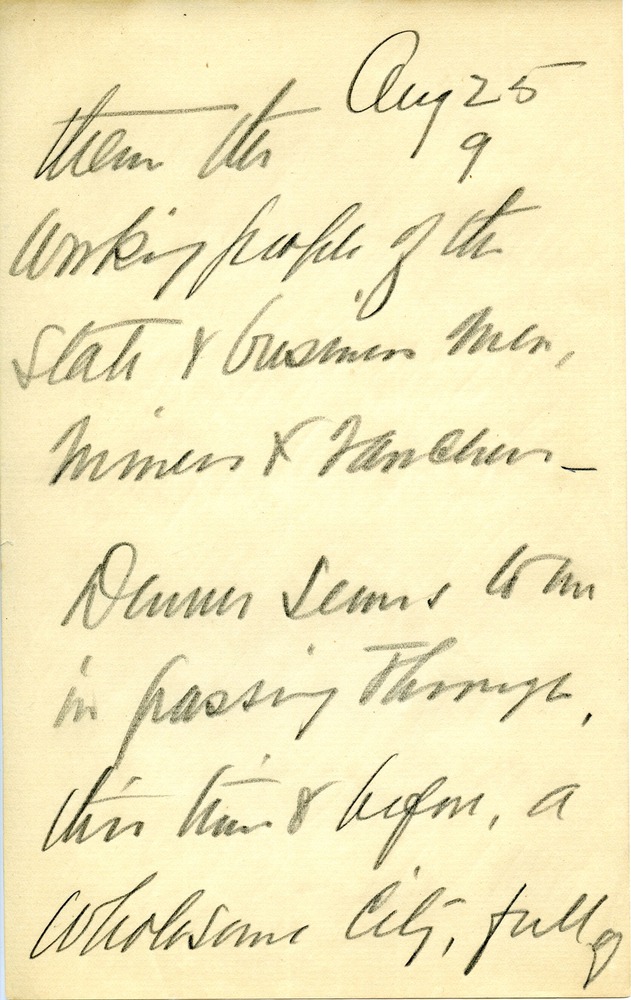 Aug 25
9
them the
working people of the
State & business men,
miners & ranchers –
Denver seems to me
in passing through,
this time & before, a
wholesome City, full of